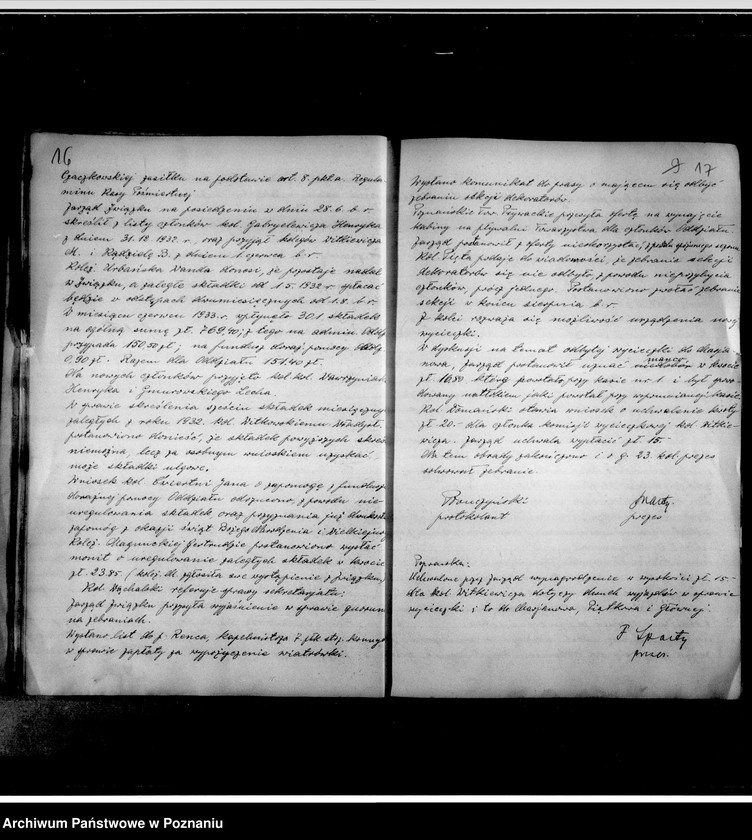 16
Czaczkowskiej zasiłku na podstawie art. 8. pkt. a. Regula-
minu Kasy Pośmiertnej
Zarząd Związku na posiedzeniu w dniu 28. 6. b. r.
skreślił z listy członków kol. Gabryelewicza Henryka
z dniem 31. 12. 1932. r., oraz przyjął kolegów Witkiewicza
M. i Kądziele B. z dniem 1. czerwca b. r.
Koleż. Urbańska Wanda donosi, że pozostaje nadal
w Związku, a zaległe składki od 1. 5. 1932 r. spłacać
będzie w odstępach dwumiesięcznych od 1. 8. b. r.
W miesiącu czerwcu 1933. r. wpłynęło 301 składek
na ogólną sumę zł. 769,40; z tego na admin. Oddz.
przypada 150.50 zł.; na fundusz doraź. pomocy Oddz.
0,90 zł. Razem dla Oddziału 151,40 zł.
Na nowych członków przyjęto kol. kol. Wawrzyniaka
Henryka i Gmurowskiego Lecha.
W sprawie skreślenia sześciu składek miesięcznych
zaległych z roku 1932. kol. Witkowskiemu Władysł.
postanowiono donieść, że składek powyższych skreślić
nie można, lecz za osobnym wnioskiem uzyskać
może składki ulgowe.
Wniosek kol. Ćwiertni Jana o zapomogę z funduszu
doraźnej pomocy Oddziału odrzucono, z powodu nie-
uregulowania składek oraz przyznania już dwukrotnie
zapomóg z okazji świąt Bożego Narodzenia i Wielkiejnocy
Koleż. Gertrudzie postanowiono wysłać
monit o uregulowanie zaległych składek w kwocie
zł. 23.85. / koleż. M. zgłosiła swe wystąpienie z Związku/
Kol. Wąchalski referuje sprawy sekretarjatu:
Zarząd Związku przysyła wyjaśnienie w sprawie quorum
na zebraniach.
Wysłano list do p. Renca, kapelmistrza 7. płk. strz. konnych
w sprawie zapłaty za wypożyczenie wiatrówki.
17
Wysłano komunikat do prasy o mającem się odbyć
zebraniu sekcji dekoratorów.
Poznańskie Tow. Pływackie przesyła ofertę na wynajęcie
kabiny na pływalni Towarzystwa dla członków Oddziału
Zarząd postanowił z oferty nie korzystać, z powodu spóźnionego sezonu
Kol. Pięta podaje do wiadomości, że zebranie sekcji
dekoratorów się nie odbyło, z powodu nieprzybycia
członków, prócz jednego. Postanowiono zwołać zebranie
sekcji w końcu sierpnia b. r.
Z kolei rozważa się możliwość urządzenia nowej
wycieczki.
W dyskusji na temat odbytej wycieczki do Marja-
nowa, Zarząd postanowił uznać manco w kwocie
zł. 10.80 które powstało przy kasie nr. 1 i był spowo-
dowany natłokiem jaki powstał przy wspomnianej kasie.
Kol. Romański stawia wniosek o uchwalenie kwoty
zł 20.- dla członka komisji wycieczkowej kol. Witkie-
wicza. Zarząd uchwala wypłacić zł. 15.-
Na tem obrady zakończono i o g. 23. kol. prezes
solwował zebranie.
protokolant
prezes
Poprawka:
Uchwalone przez Zarząd wynagrodzenie w wysokości zł. 15.-
dla kol. Witkiewicza dotyczy dwuch wyjazdów w sprawie
wycieczki i to do Marjanowa, Piątkowa i Głównej.
prezes.
Archiwum Państwowe w Poznaniu